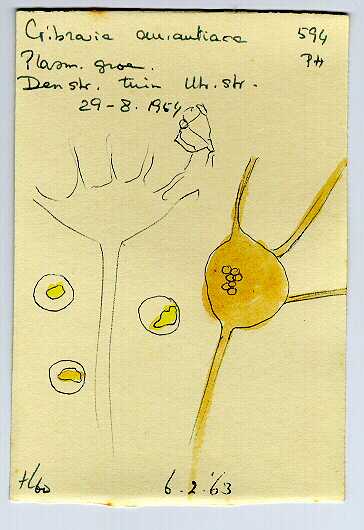 Cribraria aurantiaca 594
Plasm. groen. PH
Den str. tuin Utr. str.
29-8. 1954
H60 6.2.'63